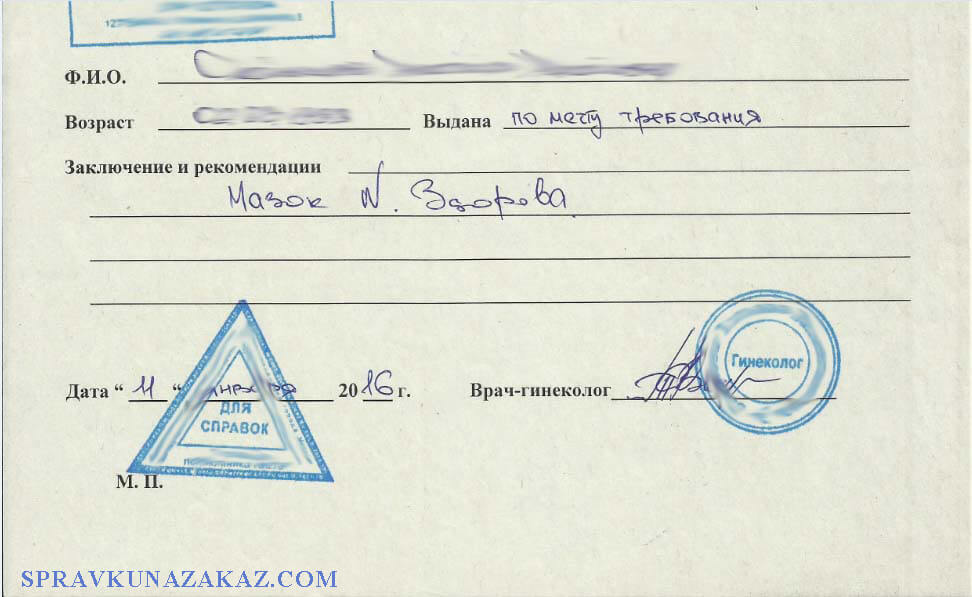 12
Ф.И.О.
Возраст Выдана по месту требования
Заключение и рекомендации
Мазок N. Здорова
Гинеколог
Дата “ 11 “ января 2016 г. Врач-гинеколог
ДЛЯ
СПРАВОК
М. П.
SPRAVKUNAZAKAZ.COM